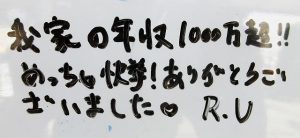 我家の年収1000万超!!
めっちゃ快挙!ありがとうご
ざいました♡ R.U